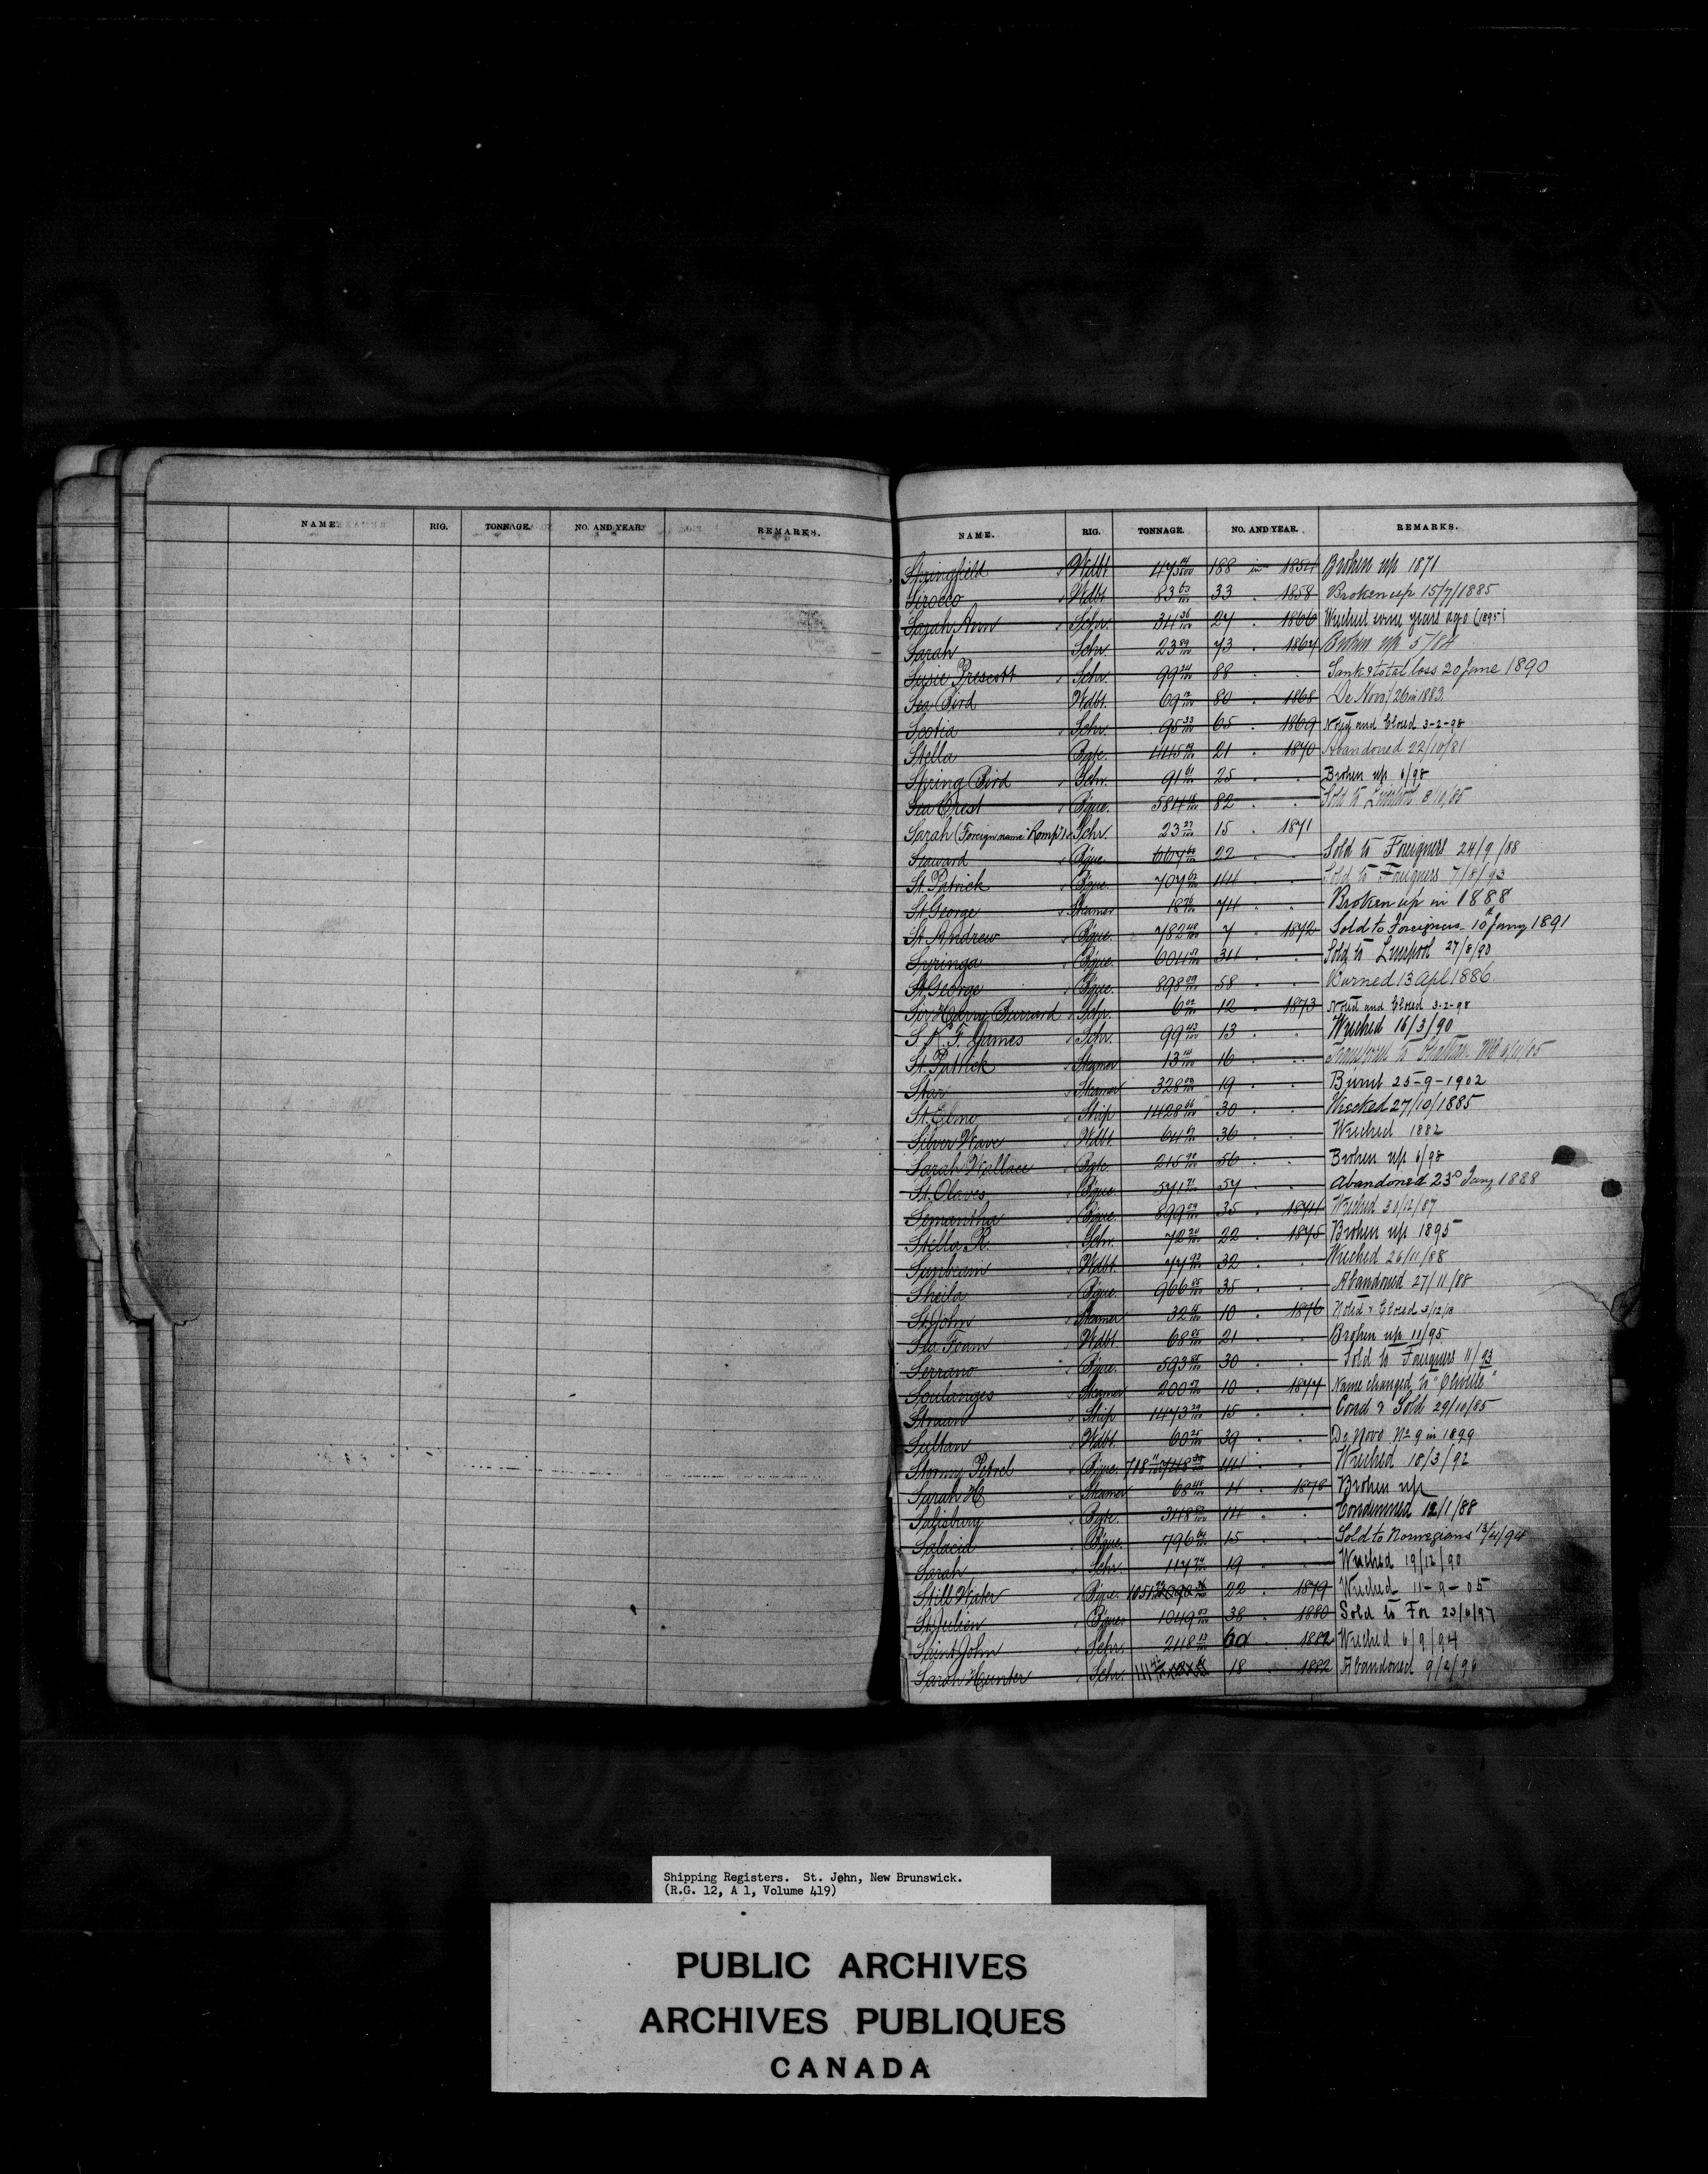 NAME. RIG. TONNAGE. NO. AND YEAR. REMARKS.
NAME. RIG. TONNAGE. NO. AND YEAR. REMARKS.
Springfield Wdbt 188 in 1854 Broken up 1871
Sirocco Wdbt. 83 63/100 33 " 1858 Broken up 15/7/1885
Sarah Ann Schr. 34 36/100 27 " 1866 Wrecked some years ago (1895)
Sarah Schr. 23 89/100 73 " 1867 Broken up 5/84
Susie Prescott Schr. 99 24/100 88 " " Sank & total loss 20 June 1890
Sea Bird Wdbt. 69 12/100 80 " 1868 De Novo, 26 in 1883.
Scotia Schr. 95 33/100 65 " 1869 Noted and Closed 3-2-98
Stella Bgte. 21 " 1870 Abandoned 22/10/81
Spring Bird Schr. 91 61/100 25 " " Broken up 6/98
Sea Crest Bque. 584 82 " " Sold to Liverpool 8/10/85
Sarah (Foreign name "Romp") Schr. 23 27/100 15 " 1871
Seaward Bque. 667 22 " " Sold to Foreigners 24/9/88
St. Patrick Bque. 707 62/100 44 " " Sold to Foreigners 7/8/93
St. George Steamer 18 74 " " Broken up in 1888
St. Andrew Bque. 782 48/100 7 " 1872 Sold to Foreigners 10th Jany 1891
Syringa Bque. 604 34 " " Sold to Liverpool 27/8/90
St. George Bque. 898 58 " " Burned 13 Apl 1886.
Sir Harry Burrard Schr. 6 12 " 1873 Noted and Closed 3-2-98
S. K. F. James Schr. 99 43/100 13 " " Wrecked 16/3/90
St. Patrick Steamer 13 14/100 16 " " Transferred to Chatham NB
Star Steamer 328 19 " " Burnt 25-9-1902
St. Elmo Ship 1428 66/100 30 " " Wrecked 27/10/1885
Silver Wave Wdbt. 64 36 " " Wrecked 1882
Sarah Wallace Bgte. 215 56 " " Broken up 6/98
St. Olaves Bque. 571 57 " " Abandoned 23d Jany 1888
Semantha Bque. 899 09/100 35 " 1874 Wrecked 30/12/87
Stella R. Schr. 72 22 " 1875 Broken up 1895
Sunbeam Wdbt. 77 93/100 32 " " Wrecked 26/11/88
Sheila Bque. 966 85/100 35 " " Abandoned 27/11/88
St. John Steamer 32 10 " 1876 Noted & Closed 3/12/13
Sea Foam Wdbt. 68 85/100 21 " " Broken up 11/95
Serrano Bque. 593 30 " " Sold to Foreigners 11/93
Soulanges Steamer 200 10 " 1877 Name changed to
Ship 1473 29/100 15 " " Cond & Sold 29/10/85
Sultan Wdbt. 60 25/100 39 " " De Novo No 9 in 1899
Stormy Petrel Bque. 718 44 " " Wrecked 18/3/92
Sarah H Steamer 68 48/100 4 " 1878 Broken up
Salisbury Bgte. 348 14 " " Condemned 12/1/88
Salacia Bque. 796 64/100 15 " " Sold to Norwegians 13/4/94
Sarah Schr. 117 19 " " Wrecked 19/12/90
Still Water Bque. 1051 22 " 1879 Wrecked 11-9-05
St. Julien Bque. 1049 38 " 1880 Sold to For 23/6/97
Saint John Schr. 248 13/100 60 " 1882 Wrecked 6/9/94
Sarah Hunter Schr. 18 " 1882 Abandoned 9/2/96
Shipping Registers. St. John, New Brunswick.
(R.G. 12, A 1, Volume 419)
PUBLIC ARCHIVES
ARCHIVES PUBLIQUES
CANADA